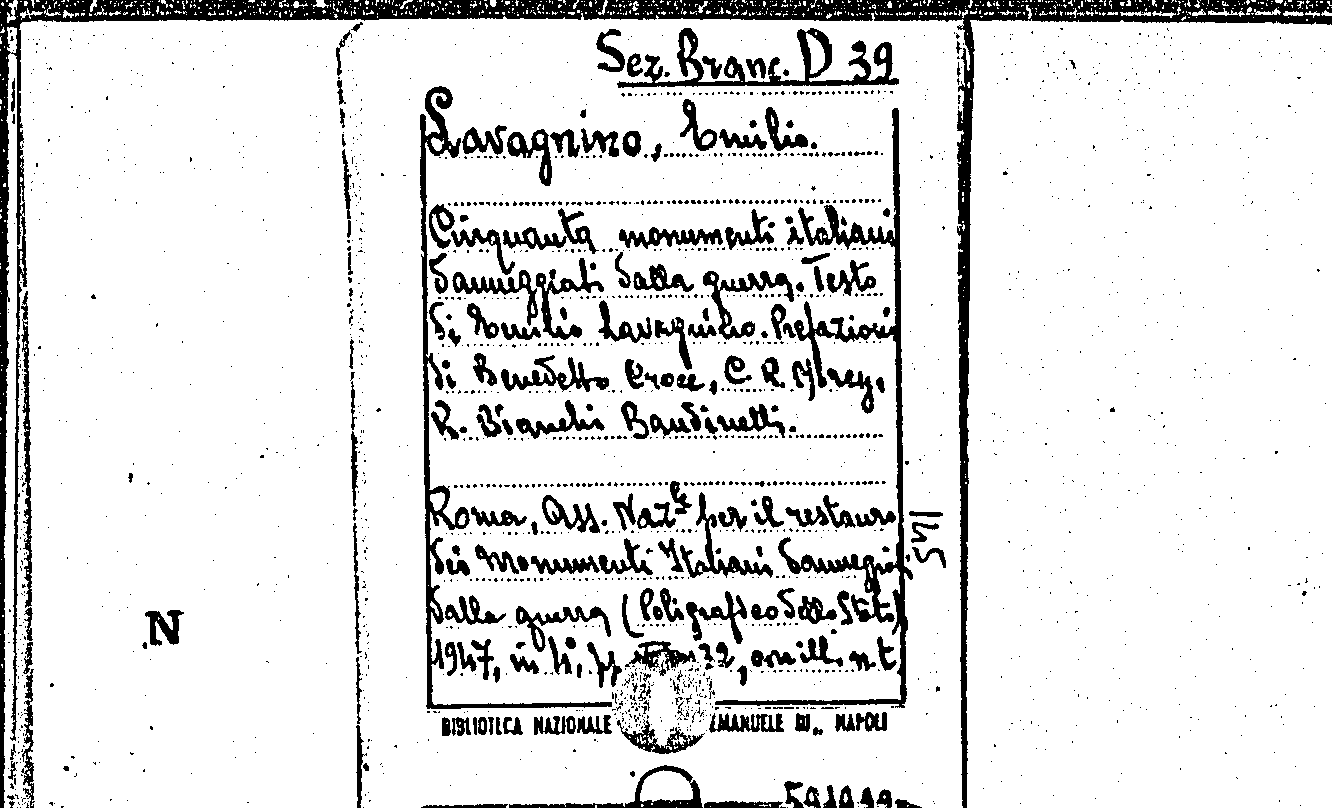 Sez. Branc. D 39
Lavagnino, Emilio.
Cinquanta monumenti italiani
danneggiati dalla guerra. Testo
di Emilio Lavagnino. Prefazioni
di Benedetto Croce, C. R. Morey,
R. Bianchi Bandinelli.
Roma, Ass. Naz.le per il restauro
dei Monumenti Italiani danneggiati
dalla guerra (Poligrafico dello Stato)
1947, in 4°, pp. 132, con ill. n. t.
N
BIBLIOTECA NAZIONALE EMANUELE III„ NAPOLI